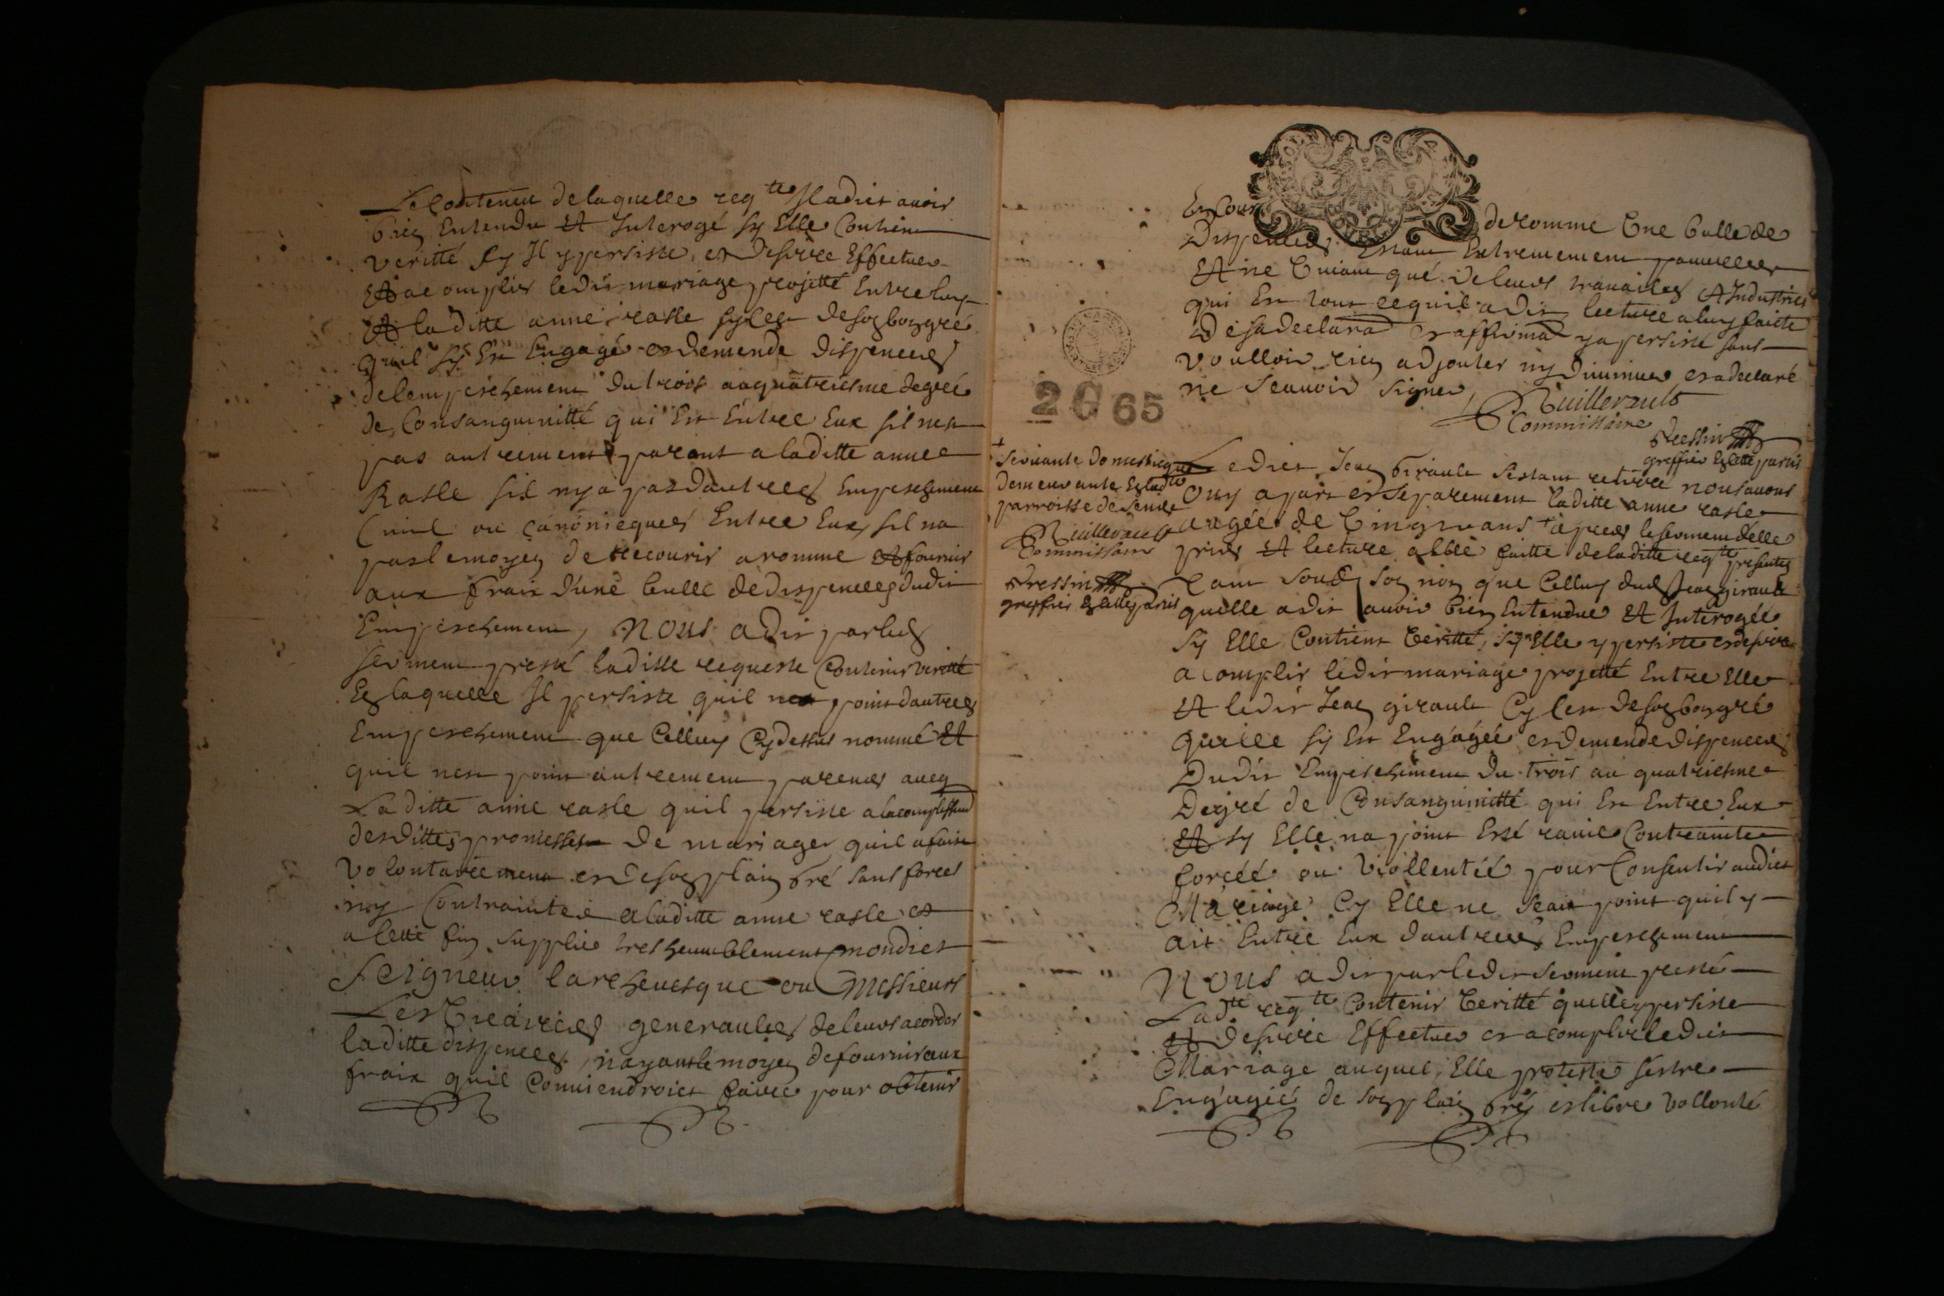 Le Contenu de laquelle reqte Il a dict avoir
bien Entendu Et Interogé sy Elle Contient
veritté sy Il y persiste et Desire Effectuer
Et acomplir ledit mariage projetté Entre luy
Et laditte anne rasle sy cest de son bon gré
quil sy Est Engagé et demende dispences
de lempeschement du trois au quatriesme degré
de Consanguinitté qui Est Entre Eux sil nest
pas autrement parent a laditte anne
Rasle sil ny a pas dautres Empeschement
Civil ou canonicques Entre Eux, sil na
pas le moyen de recourir a romme Et fournir
aux fraix d'une bulle de dispences dudit
Empeschement, Nous a dit par led
serment presté laditte requeste Contenir verité
En laquelle Il persiste quil nest point dautres
Empeschement que Celluy Cy dessus nommé Et
quil nest point autrement parent avecq
Laditte anne rasle quil persiste a lacomplissemt
desdittes promesses de mariage quil a faict
volontairement et de son plain gré sans forces
ny Contrainte a laditte anne rasle et
a cette fin supplie tres heumblement mondict
Seigneur larchevesque ou Messieurs
Les Vicaires generaulx de leurs acorder
laditte dispences, nayant le moyen de fournir aux
fraix quil Conviendroict faire pour obtenir
En Cour de romme Une bulle de
Dispences Estant Extremement pauvres
Et ne Vivant que de leurs travailes Et Industries
qui Est tout ce quil a dit lecture a luy faicte
De sa declaraon raffirmaon y a persisté sans
voulloir rien adjouter ny diminuer et a declaré
ne scavoir signer
Ruillerault
Commissaire
Fressin
greffier En cette partis
2 G 65
+ servante domesticque
demeurante En ladte
parroisse de
Ruillerault
Commissaire
Fressin
greffier En cette partis
Ledict Jean Girault sestant retiré nous avons
Ouy a part et separement laditte anne rasle
aagée de Vingt ans + apres le serment delle
pris Et lecture a elle faitte de laditte reqte presentée
tant soubz son nom que Celluy dud Jean girault
quelle a dit avoir bien Entendue Et Interogée
Sy Elle Contient Veritté, sy Elle y persiste et desire
acomplir ledit mariage projetté Entre Elle
Et ledit Jean girault Cy Cest de son bon gré
quelle sy Est Engagée et demende dispences
Dudit Empeschement du trois au quatriesme
Degré de Consanguinitté qui Est Entre Eux
Et sy Elle na point Esté ravie Contrainte
forcée ou Viollentée pour Consentir audict
Mariage Cy Elle ne scait point quil y
ait Entre Eux dautres Empeschement
Nous a dit par ledit serment presté
Ladte reqte Contenir Veritté quelle y persiste
Et Desire Effectuer et acomplir ledict
Mariage auquel Elle proteste sestre
Engagée de son plain gré et libre vollonté